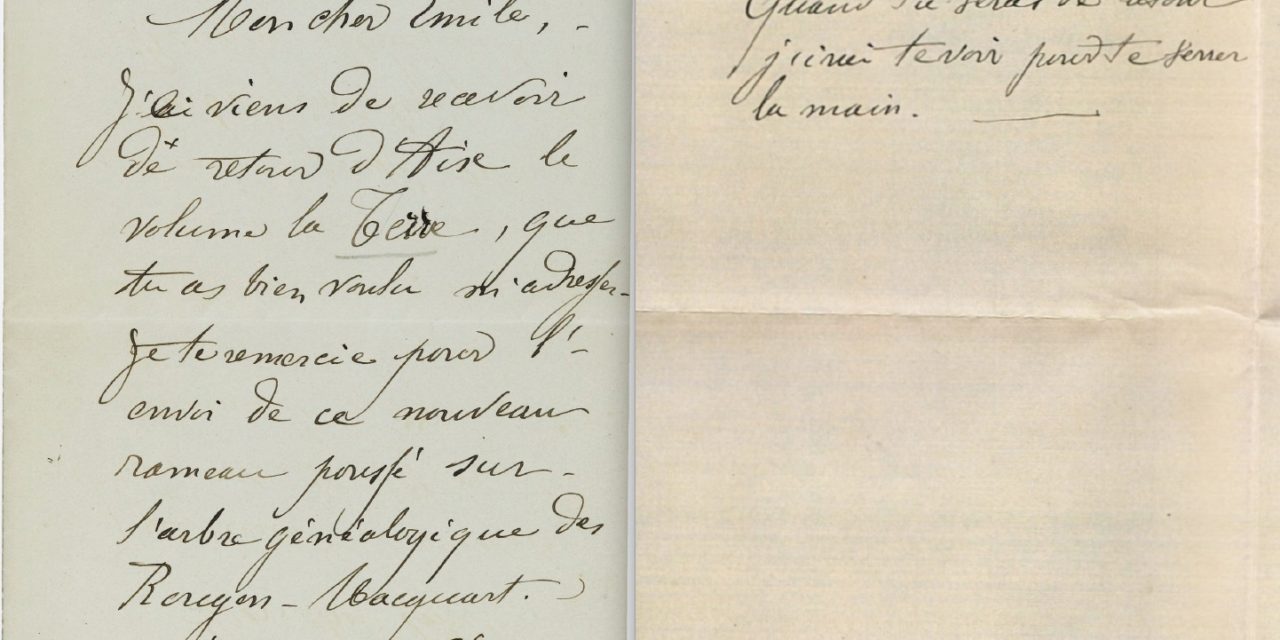 Mon cher Emile,
Je viens de recevoir
de retour d'Aix le
volume la Terre, que
tu as bien voulu m'adresser.
Je te remercie pour l'-
envoi de ce nouveau
rameau poussé sur
l'arbre généalogique des
Rougon-Macquart.
Quand tu seras de retour
j'irai te voir pour te serrer
la main.